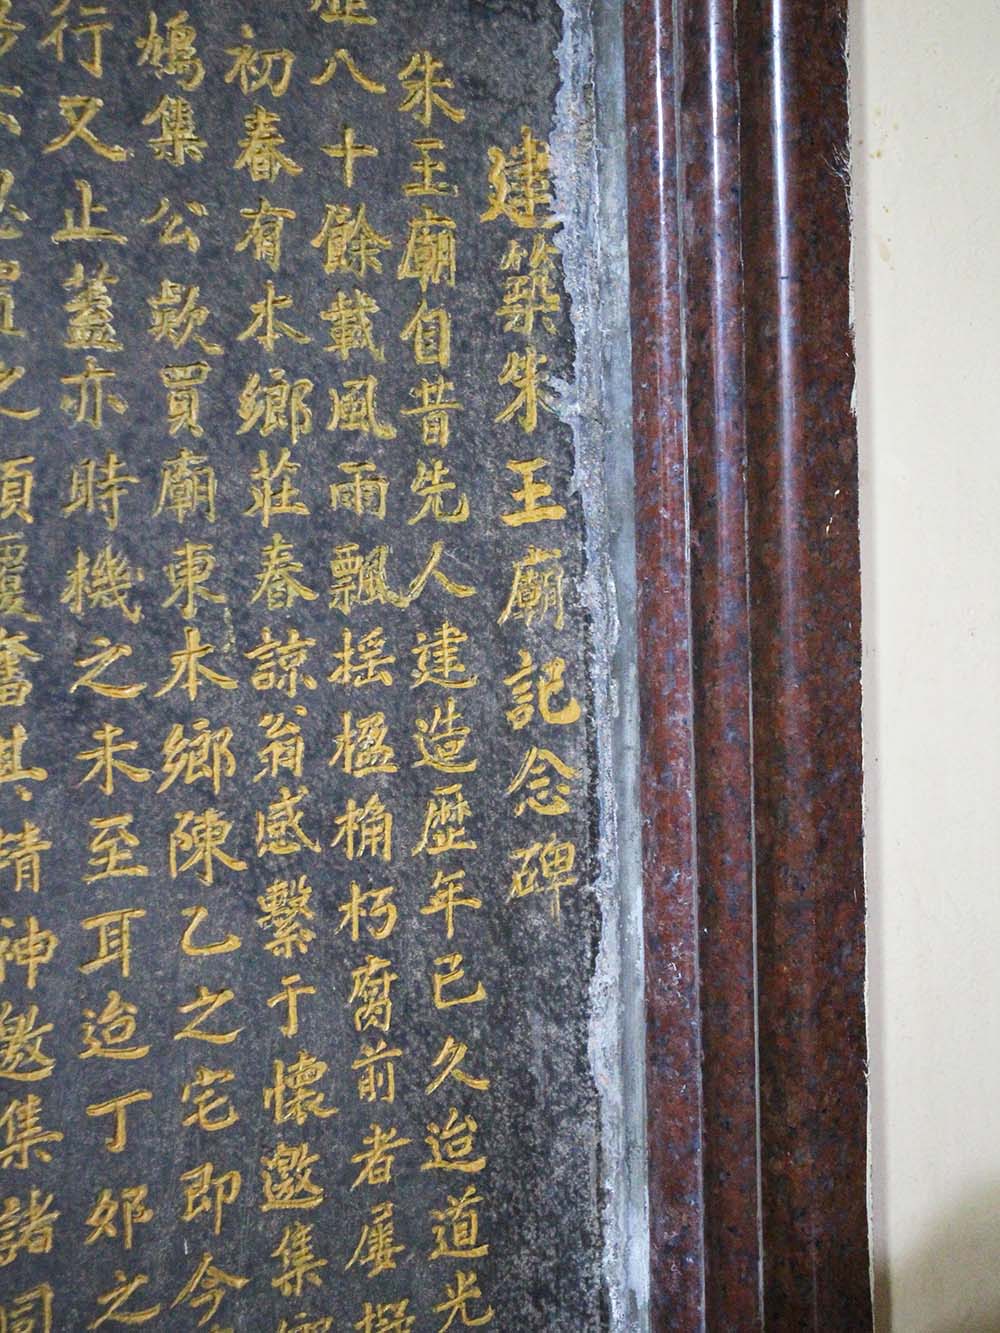 建築朱王廟記念碑
朱王廟自昔先人建造歷年已久迨道光
八十餘載風雨飄搖楹桷朽腐前者屢
初春有本鄉莊春諒翁感繫于懷邀集
鳩集公款買廟東本鄉陳乙之宅即今
行又止蓋亦時機之未至耳迨丁邜之
置之傾覆奮其精神邀集諸同